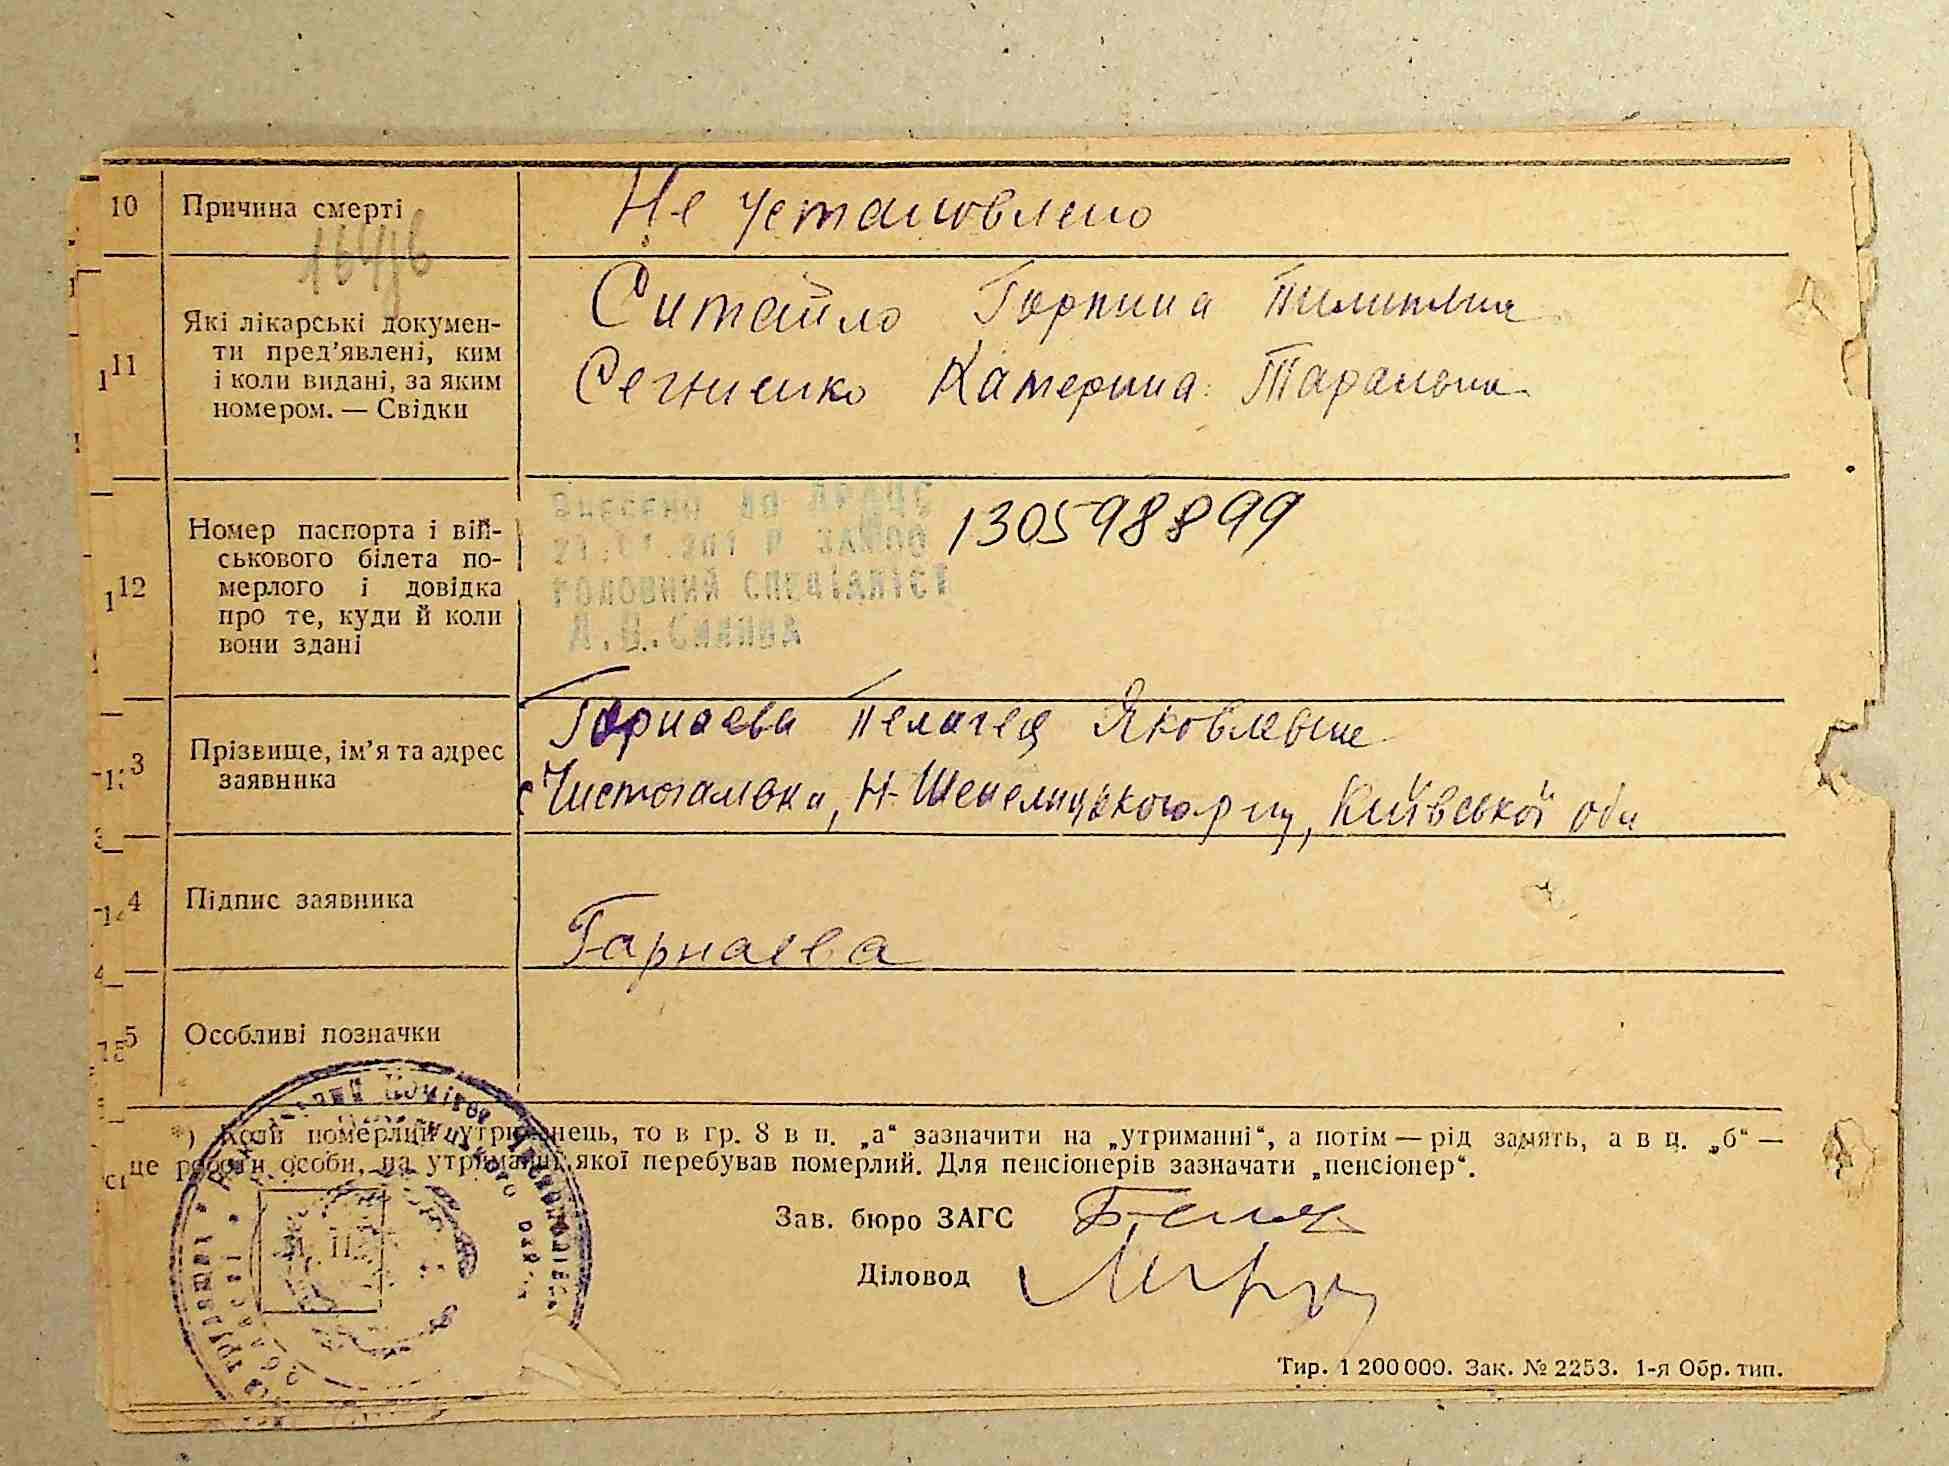 10 Причина смерті Не установлено
164/в
11 Які лікарські докумен-
ти пред'явлені, ким
і коли видані, за яким
номером. — Свідки
Ситайло Горпина Пилиповна
Сегненко Катерина Тарасовна
12 Номер паспорта і вій-
ськового білета по-
мерлого і довідка
про те, куди й коли
вони здані
Внесено до ДРАЦС
130598899
головний спеціаліст
Прізвище, ім'я та адрес
заявника
Гарнаева Пелагея Яковлевна
с Чистогаловка, Н-Шепелицького р-ну, Київської обл
Підпис заявника
Гарнаева
Особливі позначки
*) Коли померлий утриманець, то в гр. 8 в п. „а“ зазначити на „утриманні“, а потім — рід занять, а в п. „б“ —
це роботи особи, на утриманні якої перебував померлий. Для пенсіонерів зазначати „пенсіонер“.
Зав. бюро ЗАГС
Діловод
Тир. 1 200 000. Зак. № 2253. 1-я Обр. тип.